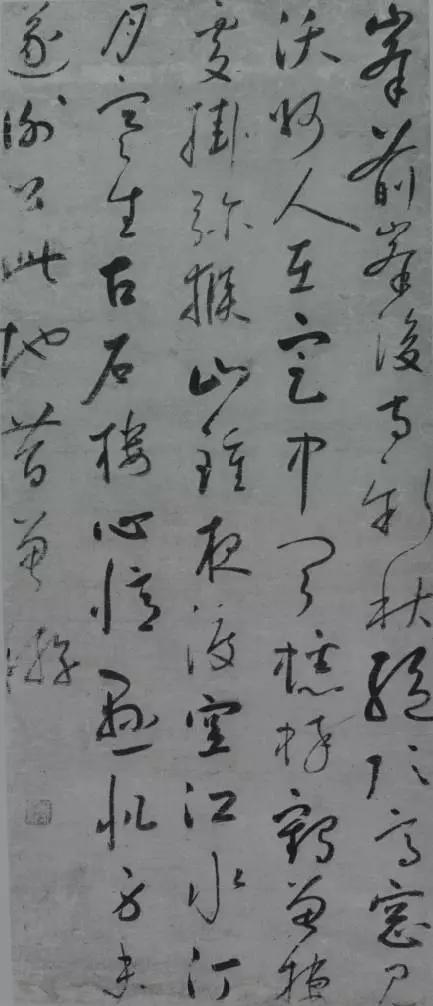 峯前峯後寺新秋絕頂高窓見
沃州人在定中聞蟋蟀鶴曾棲
處掛獼猴山鐘夜渡空江水汀
月寒生古石樓心憶懸帆身未
遂謝公此地昔曾遊